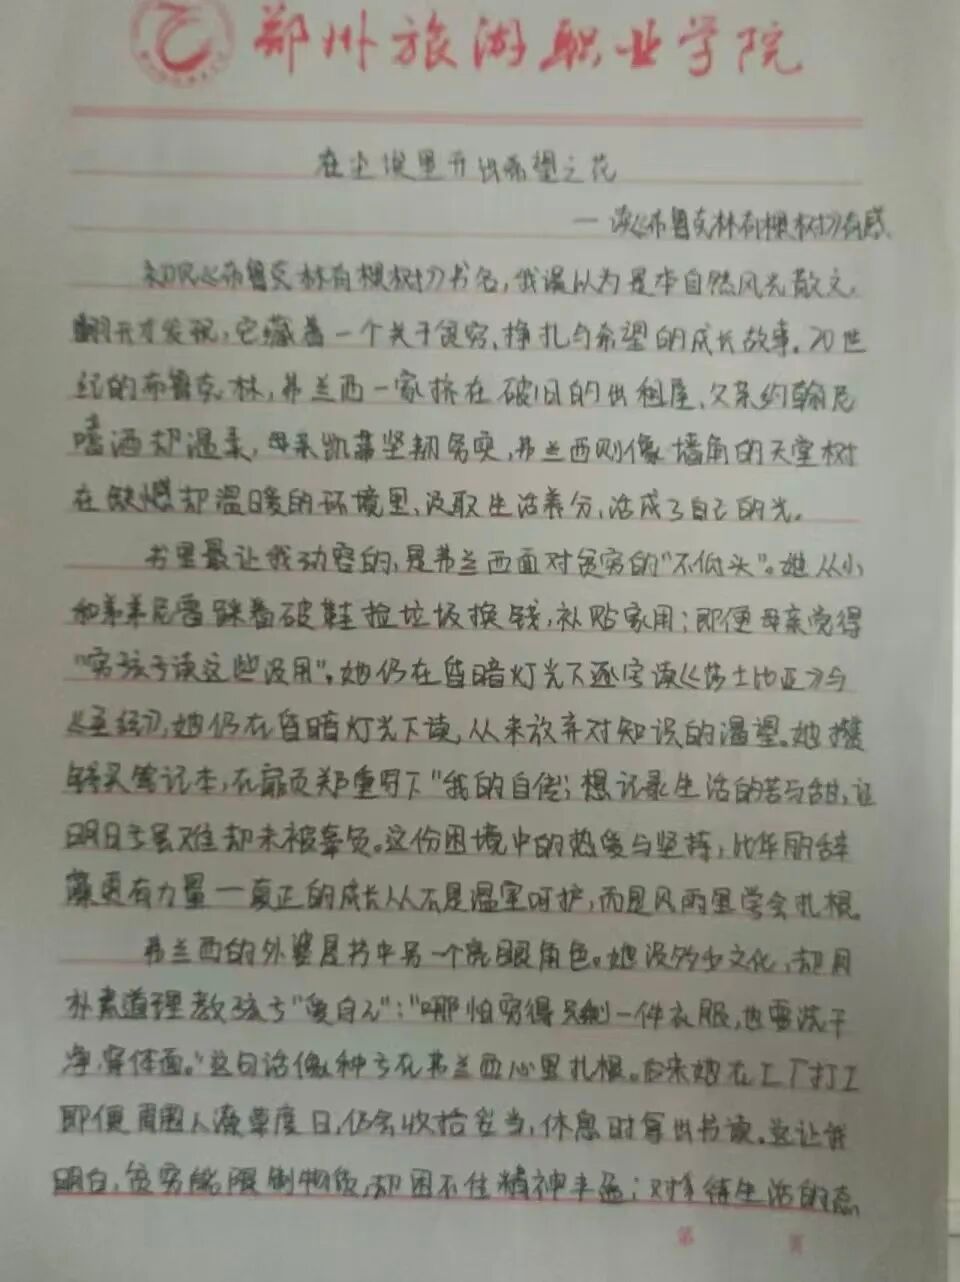 郑州旅游职业学院
在尘埃里开出希望之花
—读《布鲁克林有棵树》有感
初见《布鲁克林有棵树》书名,我误以为是本自然风光散文,
翻开才发现,它藏着一个关于贫穷、挣扎与希望的成长故事.20世
纪的布鲁克林,弗兰西一家挤在破旧的出租屋、父亲约翰尼
嗜酒却温柔,母亲凯蒂坚韧务实,弗兰西则像墙角的天堂树
在缺憾却温暖的环境里,汲取生活养分,活成了自己的光。
书里最让我动容的,是弗兰西面对贫穷的"不低头"。她从小
和弟弟尼雷踩着破鞋捡垃圾换钱,补贴家用;即便母亲觉得
"穷孩子读这些没用",她仍在昏暗灯光下逐字读《莎士比亚》与
《圣经》,她仍在昏暗灯光下读,从未放弃对知识的渴望。她攒
钱买笔记本,在扉页郑重写下"我的自传;想记录生活的苦与甜,证
明日子虽难却未被辜负。这份困境中的热爱与坚持,比华丽辞
藻更有力量—真正的成长从不是温室呵护,而是风雨里学会扎根。
弗兰西的外婆是书中另一个亮眼角色。她没多少文化,却用
朴素道理教孩子"爱自己":"哪怕穷得只剩一件衣服,也要洗干
净,穿体面。"这句话像种子在弗兰西心里扎根。后来她在工厂打工
即便周围人潦草度日,仍会收拾妥当,休息时拿出书读。这让我
明白,贫穷能限制物质,却困不住精神丰盈;对待生活的态
第 页